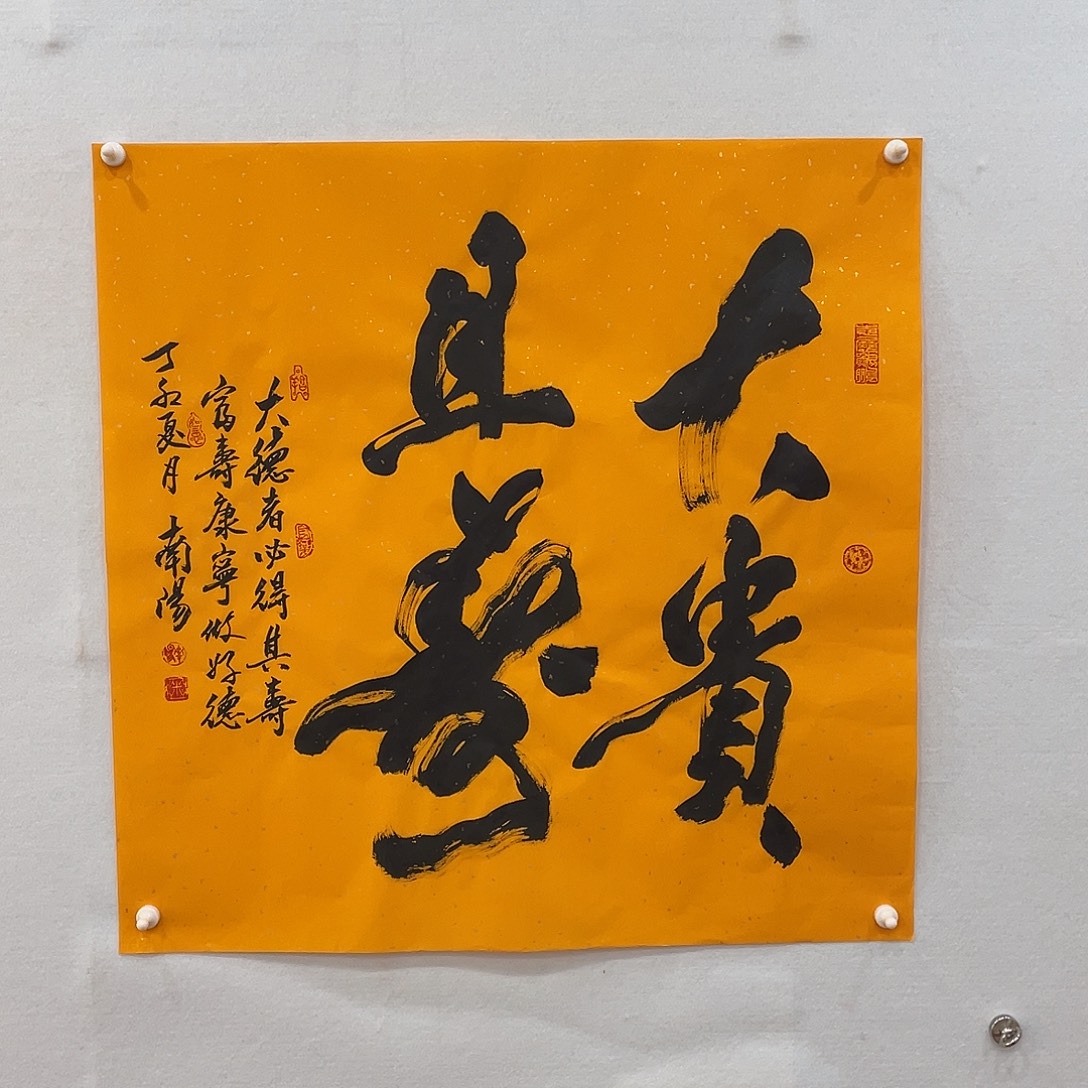 大貴
且壽
大德者必得其壽
富壽康寧攸好德
丁酉夏月 南陽